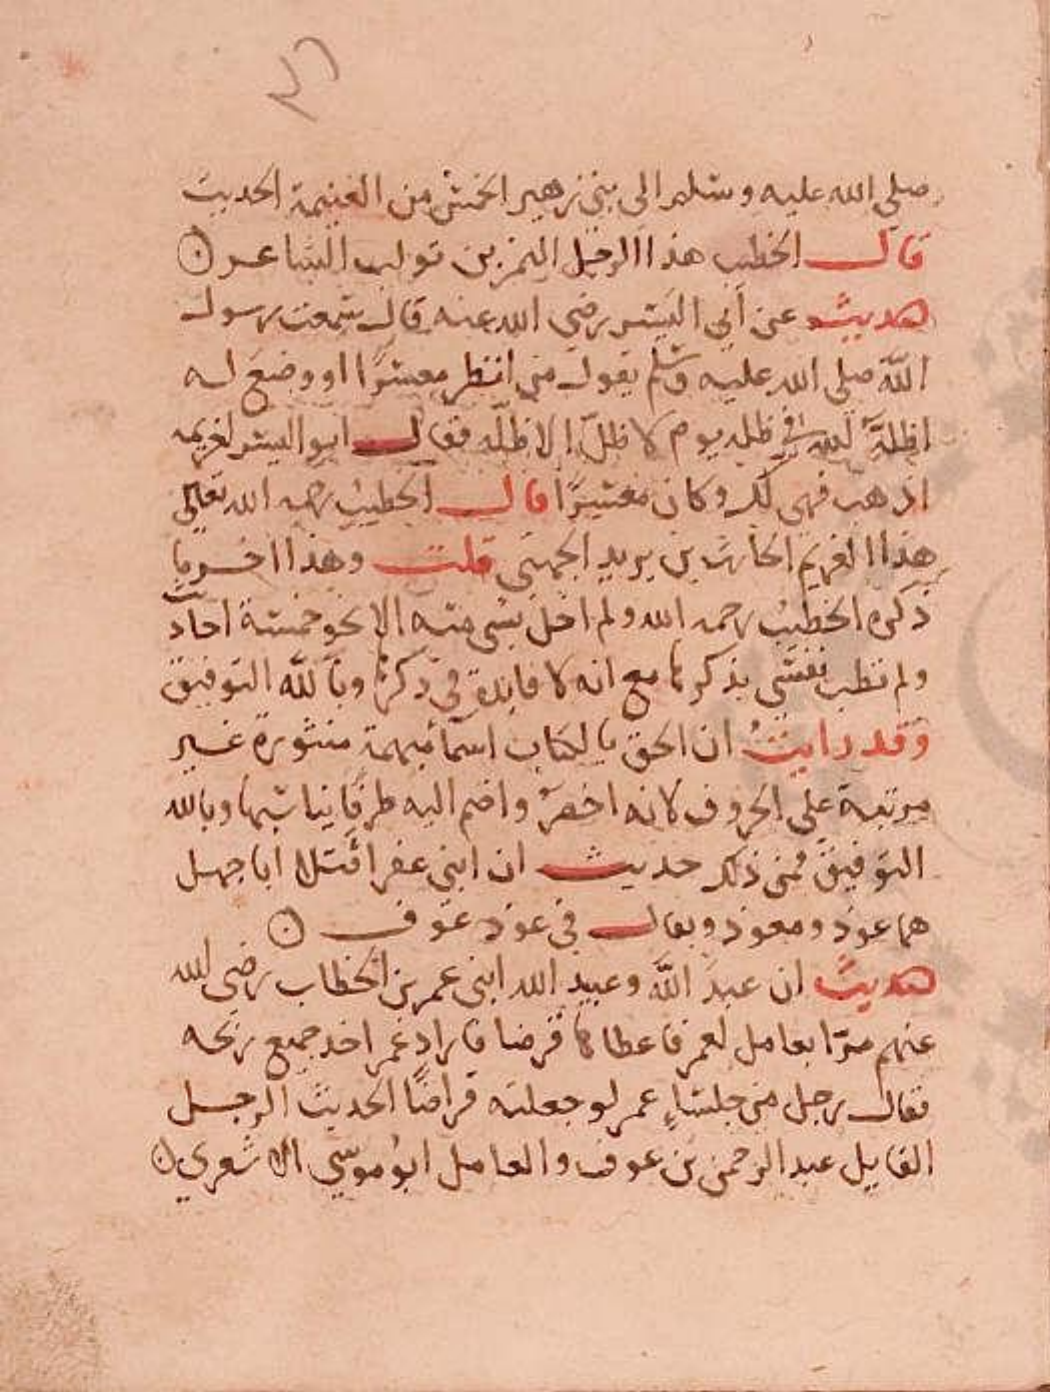 صلى الله عليه وسلم الى بني زهير الخمس من الغنيمة الحديث
قال الخطيب هذا الرجل النمر بن تولب الشاعر
حديث عن أبي اليسر رضي الله عنه قال سمعت رسول
الله صلى الله عليه وسلم يقول من انظر معسرًا او وضع له
اظله الله في ظله يوم لا ظل الا ظله فقال ابو اليسر لغريمه
اذهب فهي لك وكان معسرًا قال الخطيب رحمه الله تعالى
هذا الغريم الحارث بن يزيد الجهني قلت وهذا اخر ما
ذكره الخطيب رحمه الله ولم اخل بشي منه الا نحو خمسة احاد
ولم تطب نفسي بذكرها مع انه لا فايدة في ذكرها وبالله التوفيق
وقد رايت ان الحق بالكتاب اسما مبهمة منثورة غير
مرتبة على الحروف لانه اخصر واضم اليه طرفا يناسبها وبالله
التوفيق فمن ذلك حديث ان ابني عفرا قتلا ابا جهل
هما عوذ ومعوذ ويقال في عوذ عوف
حديث ان عبد الله وعبيد الله ابني عمر بن الخطاب رضي الله
عنهم مرّا بعامل لعمر فاعطاهما قرضا فاراد عمر اخذ جميع ربحه
فقال رجل من جلساء عمر لو جعلته قراضًا الحديث الرجل
القايل عبد الرحمن بن عوف والعامل ابو موسى الاشعري